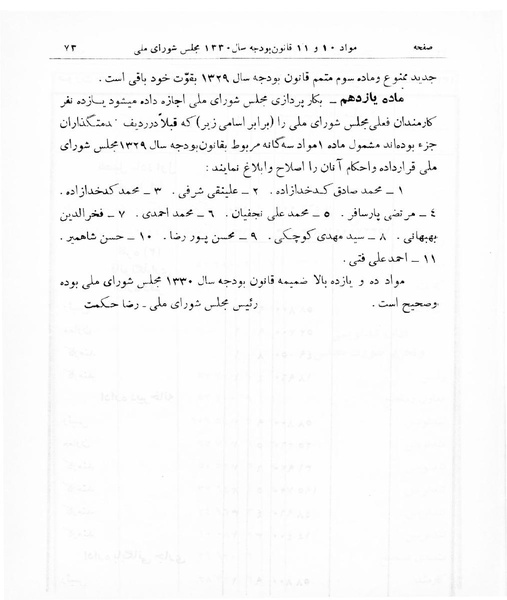 صفحه مواد ۱۰ و ۱۱ قانون بودجه سال ۱۳۳۰ مجلس شورای ملی ۷۳
جدید ممنوع و ماده سوم متمم قانون بودجه سال ۱۳۲۹ بقوّت خود باقی است .
ماده یازدهم – بکار پردازی مجلس شورای ملی اجازه داده میشود یازده نفر
کارمندان فعلی مجلس شورای ملی را (برابر اسامی زیر) که قبلاً در ردیف خدمتگذاران
جزء بوده‌اند مشمول ماده ۱ مواد سه گانه مربوط بقانون بودجه سال ۱۳۲۹ مجلس شورای
ملی قرار داده و احکام آنان را اصلاح و ابلاغ نمایند :
۱ – محمد صادق کدخدازاده . ۲ – علینقی شرفی . ۳ – محمد کدخدازاده .
۴ – مرتضی پارسافر . ۵ – محمد علی نجفیان . ۶ – محمد احمدی . ۷ – فخرالدین
بهبهانی . ۸ – سید مهدی کوچکی . ۹ – محسن پور رضا . ۱۰ – حسن شاهمیر .
۱۱ – احمد علی فتی .
مواد ده و یازده بالا ضمیمه قانون بودجه سال ۱۳۳۰ مجلس شورای ملی بوده
وصحیح است . رئیس مجلس شورای ملی – رضا حکمت